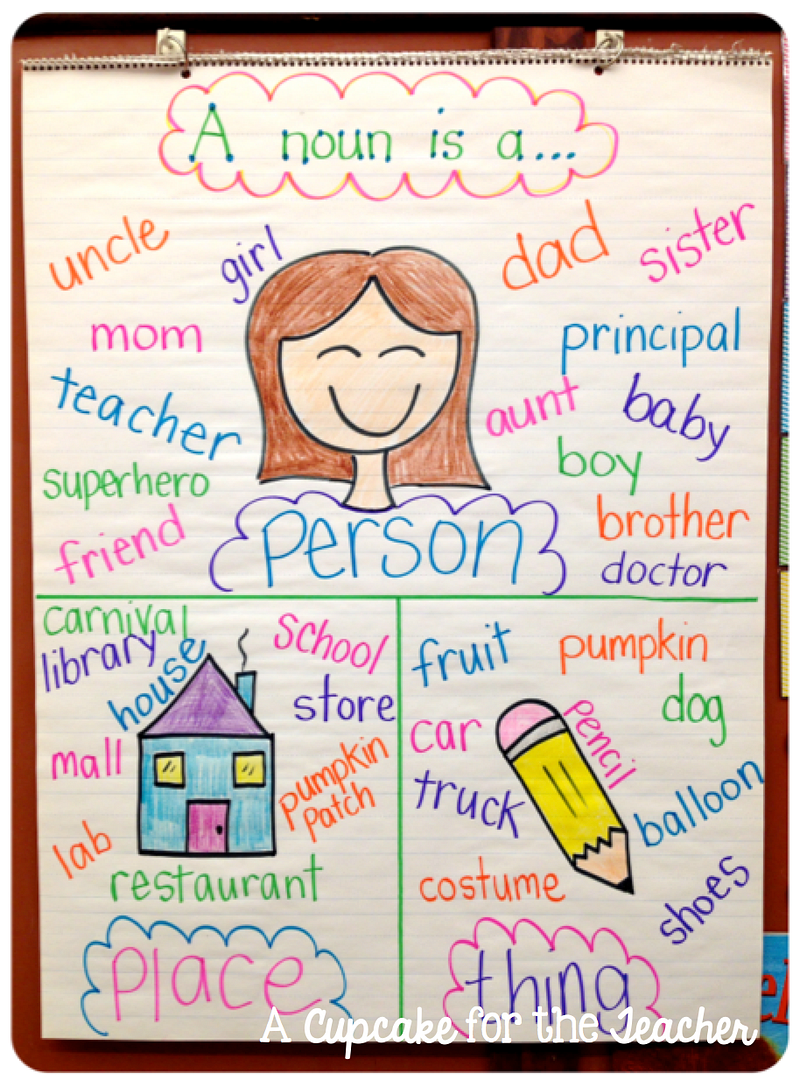 A noun is a...
uncle
girl
dad
sister
mom
principal
teacher
aunt
baby
superhero
boy
friend
brother
doctor
person
carnival
library
house
school
store
mall
pumpkin
patch
lab
restaurant
place
fruit
pumpkin
dog
car
pencil
truck
balloon
costume
shoes
thing
A Cupcake for the Teacher